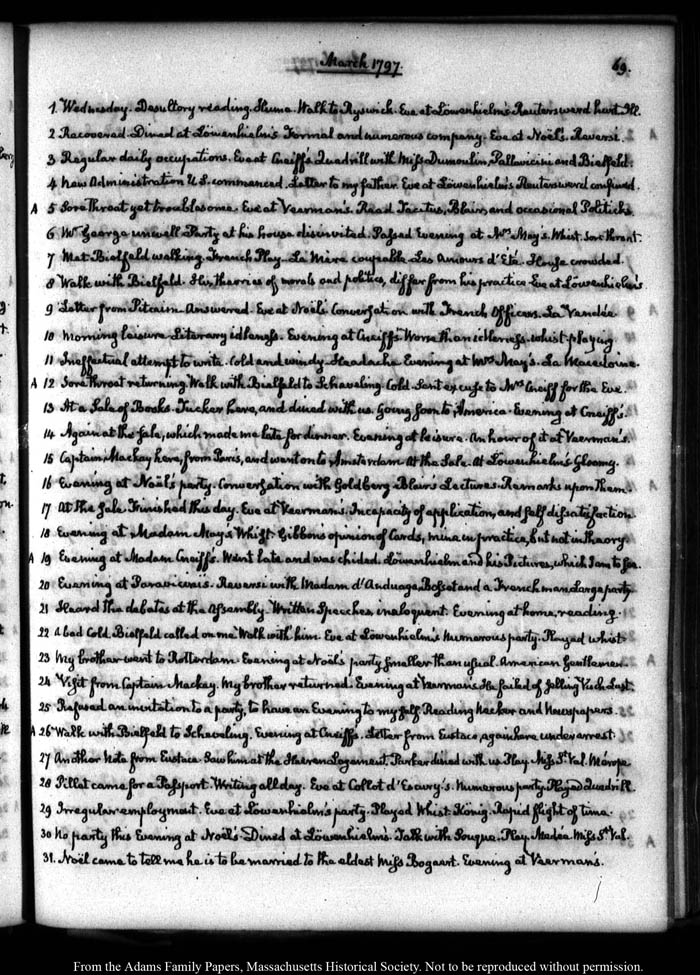 March 1797.
69.
1 Wednesday. Desultory reading. Hume. Walk to Ryswick. Eve at Löwenhielm's Reutersward hurt. Ill.
2 Recovered. Dined at Löwenhielm's. Formal and numerous company. Eve at Noël's. Reversi.
3 Regular daily occupations. Eve at Cneiffs. Quadrill with Miss Dumoulin, Pallavicini and Bielfeld.
4 New Administration U.S. commenced. Letter to my father. Eve at Löwenhielm's. Reutersward confined.
A 5 Sore throat yet troublesome. Eve at Veerman's. Read Tacitus, Blair, and occasional Politicks.
6 Mr George unwell. Party at his house disinvited. Passed Evening at Mrs May's. Whist. Sore throat.
7 Met Bielfeld walking. French Play. La Mère coupable. Les Amours d'Eté. House crowded.
8 Walk with Bielfeld. His theories of morals and politics, differ from his practice. Eve at Löwenhielm's
9 Letter from Pitcairn. Answered. Eve at Noël's. Conversation with French Officers. La Vendée
10 Morning leisure. Literary idleness. Evening at Cneiffs. Worse than idleness. whist-playing.
11 Ineffectual attempt to write. Cold and windy. Headache. Evening at Mrs May's. La Macedoine.
A 12 Sore throat returning. Walk with Bielfeld to Scheveling. Cold. Sent excuse to Mrs Cneiff for the Eve.
13 At a Sale of Books. Tucker here, and dined with us. Going soon to America. Evening at Cneiff's.
14 Again at the sale, which made me late for dinner. Evening at leisure. An hour of it at Veerman's.
15 Captain Mackay here, from Paris, and went on to Amsterdam. At the Sale. At Löwenhielm's. Gloomy.
16 Evening at Noël's party. Conversation with Goldberg. Blair's Lectures. Remarks upon them.
17 At the Sale. Finished this day. Eve at Veermans. Incapacity of application, and self dissatisfaction
18 Evening at Madam May's. Whist. Gibbons opinion of Cards, mine in practice, but not in theory.
A 19 Evening at Madam Cneiff's. Went late and was chided. Löwenhielm and his Pictures, which I am to see.
20 Evening at Paravicini's. Reversi with Madam d'Anduaga, Bosset and a Frenchman. Large party
21 Heard the debates at the Assembly. Written Speeches, ineloquent. Evening at home, reading.
22 A bad Cold. Bielfeld called on me. Walk with him. Eve at Löwenhielm's. Numerous party. Played whist
23 My brother went to Rotterdam. Evening at Noël's party smaller than usual. American gentlemen.
24 Visit from Captain Mackay. My brother returned. Evening at Veermans. He failed of selling Vich Lust.
25 Refused an invitation to a party, to have an Evening to my self. Reading Necker and Newspapers.
A 26 Walk with Bielfeld to Scheveling. Evening at Cneiffs. Letter from Eustace, again here under arrest.
27 Another Note from Eustace. Saw him at the Heeren Logement. Parker dined with us. Play. Miss St Val. Mérope
28 Pillet came for a Passport. Writing all day. Eve at Collot d'Escury's. Numerous party. Played Quadrill.
29 Irregular employment. Eve at Löwenhielm's party. Played Whist. König. Rapid flight of time.
30 No party this Evening at Noël's. Dined at Löwenhielm's. Talk with Souque. Play. Medée. Miss St Val.
31. Noël came to tell me he is to be married to the eldest Miss Bogaart. Evening at Veerman's.
From the Adams Family Papers, Massachusetts Historical Society. Not to be reproduced without permission.